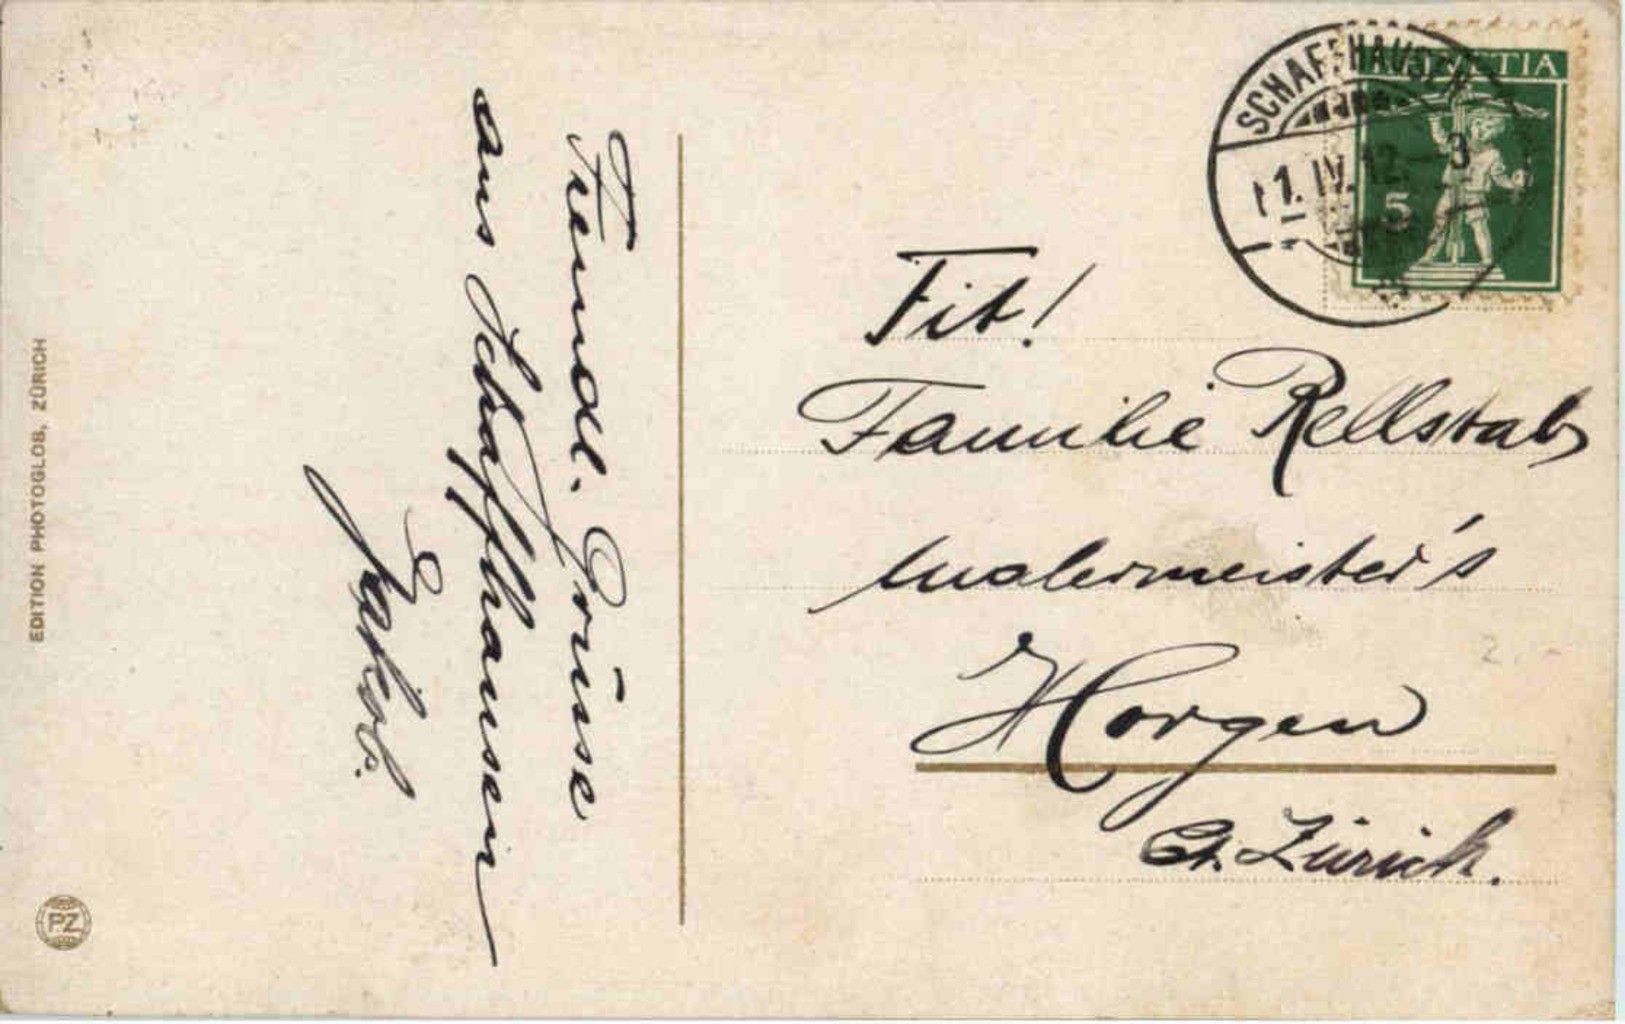 EDITION PHOTOGLOB, ZÜRICH
PZ
Freundl. Grüsse
aus Schaffhausen
Jakob.
SCHAFFHAUSEN
HELVETIA
1. IV. 12 – 3
5
Tit!
Familie Rellstab
Malermeister's
Horgen
Ct. Zürich.
2.-